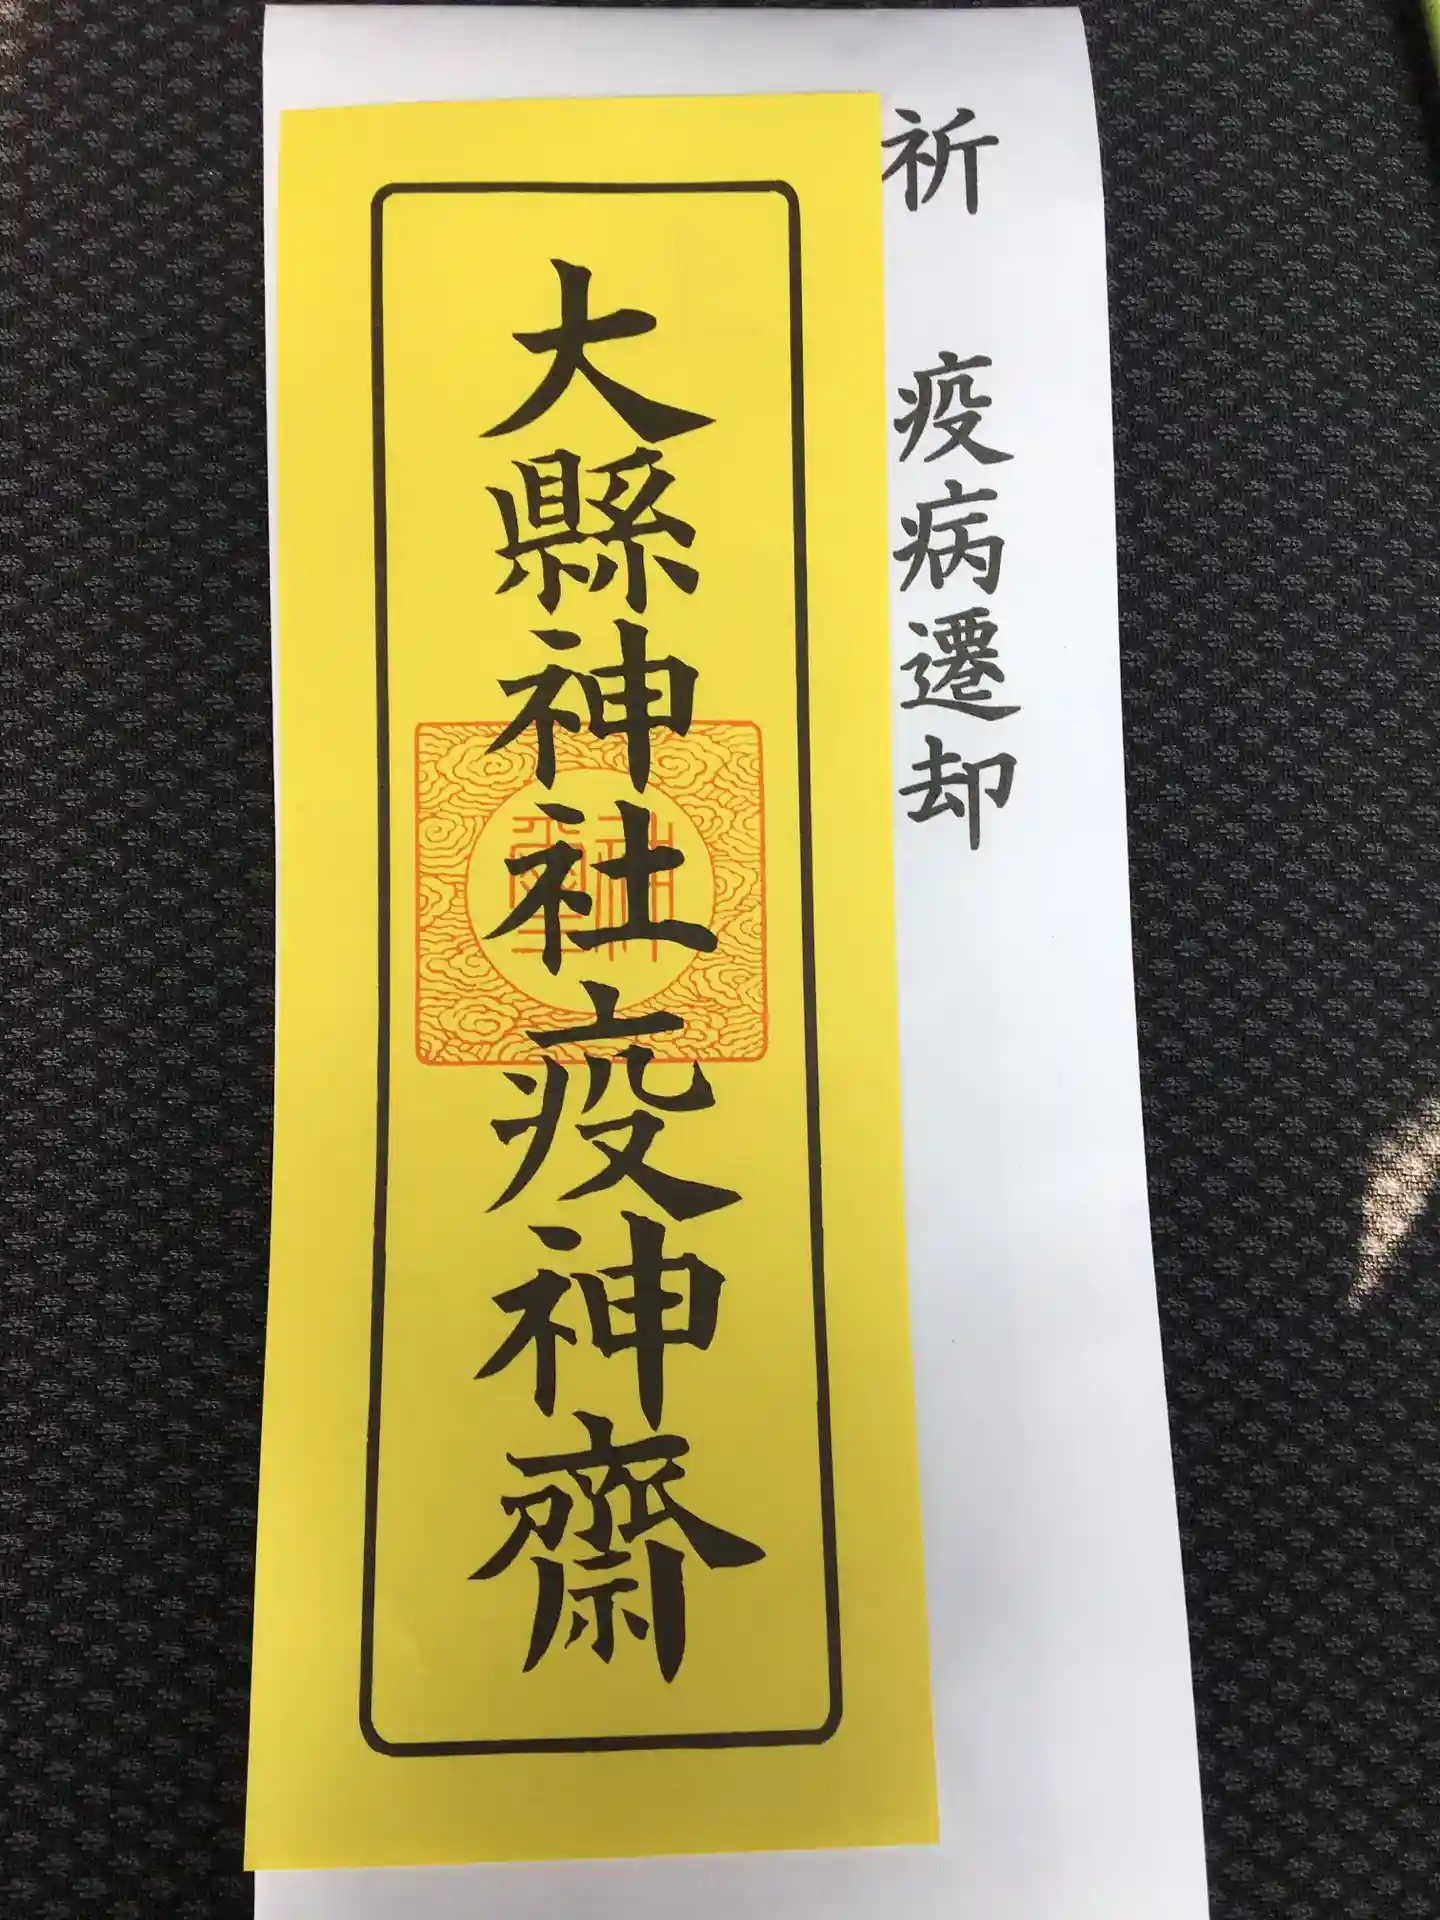 祈 疫病遷却
大縣神社疫神齋
神璽